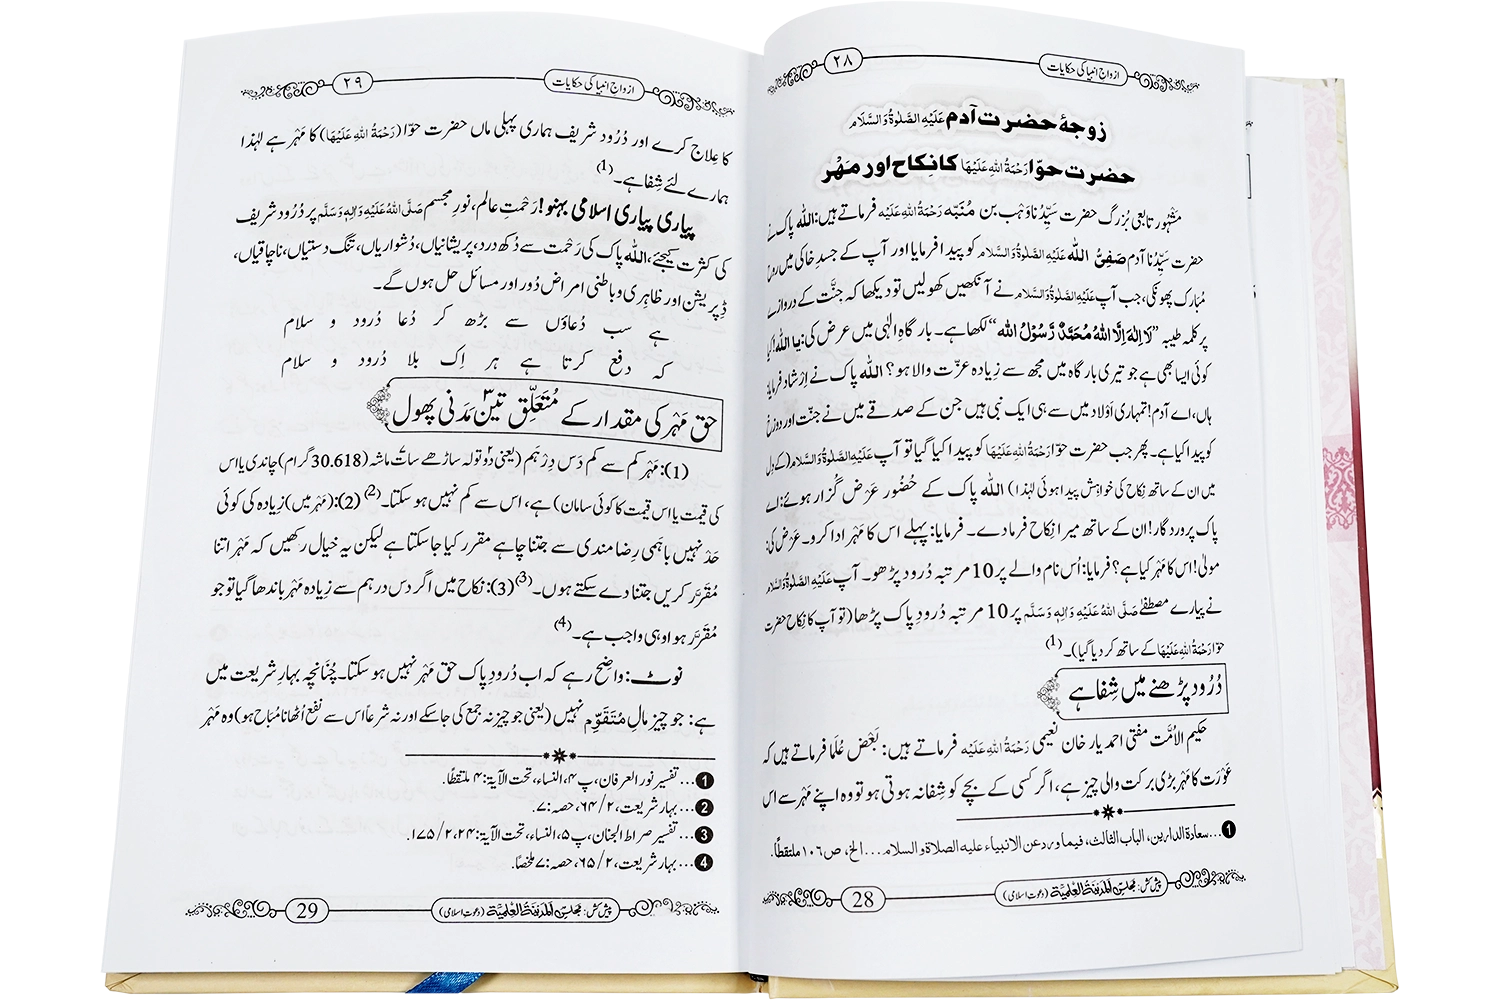 ازواجِ انبیا کی حکایات
٢٨
زوجۂ حضرت آدم عَلَیْہِ الصَّلٰوۃُ وَالسَّلَام
حضرت حوّا رَحْمَۃُ اللہِ عَلَیْہَا کا نِکاح اور مَہْر
مشہور تابعی بُزرگ حضرت سیِّدُنا وَہْب بن مُنَبِّہ رَحْمَۃُ اللہِ عَلَیْہ فرماتے ہیں: اللہ پاک نے
حضرت سیِّدُنا آدم صَفِیُّ اللہ عَلَیْہِ الصَّلٰوۃُ وَالسَّلَام کو پیدا فرمایا اور آپ کے جسدِ خاکی میں روح
مُبارَک پھونکی، جب آپ عَلَیْہِ الصَّلٰوۃُ وَالسَّلَام نے آنکھیں کھولیں تو دیکھا کہ جنَّت کے دروازے
پر کلمہ طیبہ ”لَا اِلٰہَ اِلَّا اللہُ مُحَمَّدٌ رَّسُوْلُ اللہ“ لکھا ہے۔ بارگاہِ الٰہی میں عرض کی: یا اللہ! کیا
کوئی ایسا بھی ہے جو تیری بارگاہ میں مجھ سے زِیادہ عزّت والا ہو؟ اللہ پاک نے اِرْشاد فرمایا:
ہاں، اے آدم! تمہاری اَوْلاد میں سے ہی ایک نبی ہیں جن کے صدقے میں نے جنّت اور دوزخ
کو پیدا کیا ہے۔ پھر جب حضرت حوّا رَحْمَۃُ اللہِ عَلَیْہَا کو پیدا کیا گیا تو آپ عَلَیْہِ الصَّلٰوۃُ وَالسَّلَام (کے دل
میں ان کے ساتھ نِکاح کی خواہش پیدا ہوئی لہٰذا) اللہ پاک کے حُضُور عَرْض گُزار ہوئے: اے
پاک پروردگار! ان کے ساتھ میرا نِکاح فرما دے۔ فرمایا: پہلے اس کا مَہْر ادا کرو۔ عَرْض کی:
مولیٰ! اس کا مَہْر کیا ہے؟ فرمایا: اُس نام والے پر 10 مرتبہ دُرُود پڑھو۔ آپ عَلَیْہِ الصَّلٰوۃُ وَالسَّلَام
نے پیارے مصطفٰے صَلَّی اللہُ عَلَیْہِ وَاٰلِہٖ وَسَلَّم پر 10 مرتبہ دُرُودِ پاک پڑھا (تو آپ کا نِکاح حضرت
حوّا رَحْمَۃُ اللہِ عَلَیْہَا کے ساتھ کر دیا گیا)۔ (1)
دُرُود پڑھنے میں شِفا ہے
حکیم الاُمَّت مفتی احمد یار خان نعیمی رَحْمَۃُ اللہِ عَلَیْہ فرماتے ہیں: بَعْض عُلَما فرماتے ہیں کہ
عَوْرَت کا مَہْر بڑی برکت والی چیز ہے، اگر کسی کے بچے کو شِفا نہ ہوتی ہو تو وہ اپنے مَہْر سے اس
1... سعادۃ الدارین، الباب الثالث، فیما ورد عن الانبیاء علیہ الصلاۃ و السلام... الخ، ص١٠٦ ملتقطًا.
پیش کش: مجلس المدینۃ العلمیۃ (دعوتِ اسلامی)
28
ازواجِ انبیا کی حکایات
٢٩
کا عِلاج کرے اور دُرُود شریف ہماری پہلی ماں حضرت حوّا (رَحْمَۃُ اللہِ عَلَیْہَا) کا مَہْر ہے لہٰذا
ہمارے لئے شِفا ہے۔ (1)
پیاری پیاری اسلامی بہنو! رَحْمتِ عالم، نورِ مجسم صَلَّی اللہُ عَلَیْہِ وَاٰلِہٖ وَسَلَّم پر دُرُود شریف
کی کثرت کیجئے، اللہ پاک کی رَحْمت سے دُکھ درد، پریشانیاں، دُشواریاں، تنگ دستیاں، ناچاقیاں،
ڈپریشن اور ظاہِری و باطنی امراض دُور اور مسائل حل ہوں گے۔
ہے سب دُعاؤں سے بڑھ کر دُعا دُرود و سلام
کہ دفع کرتا ہے ہر اِک بلا دُرود و سلام
حق مَہْر کی مقدار کے مُتَعَلِّق تین٣ مَدَنی پھول
(1): مَہْر کم سے کم دَس دِرْہَم (یعنی دو٢ تولہ ساڑھے سات٧ ماشہ (30.618 گرام) چاندی یا اس
کی قیمت یا اس قیمت کا کوئی سامان) ہے، اس سے کم نہیں ہو سکتا۔ (2) (2): (مَہْر میں) زِیادہ کی کوئی
حَدْ نہیں باہَمی رِضا مندی سے جتنا چاہے مقرر کیا جا سکتا ہے لیکن یہ خیال رکھیں کہ مَہْر اتنا
مُقَرَّر کریں جتنا دے سکتے ہوں۔ (3) (3): نکاح میں اگر دس درہم سے زِیادہ مَہْر باندھا گیا تو جو
مُقَرَّر ہوا وہی واجب ہے۔ (4)
نوٹ: واضِح رہے کہ اب دُرُودِ پاک حق مَہْر نہیں ہو سکتا۔ چُنَانْچِہ بہارِ شریعت میں
ہے: جو چیز مالِ مُتَقَوِّم نہیں (یعنی جو چیز نہ جمع کی جاسکے اور نہ شرعاً اس سے نفع اُٹھانا مُبَاح ہو) وہ مَہْر
1... تفسیر نور العرفان، پ ٤، النساء، تحت الآیۃ: ٤ ملتقطًا.
2... بہار شریعت، ٢/٦٤، حصہ: ٧.
3... تفسیر صراط الجنان، پ ٥، النساء، تحت الآیۃ: ٢٤، ٢/١٧٥.
4... بہار شریعت، ٢/٦٥، حصہ: ٧ ملخصًا.
پیش کش: مجلس المدینۃ العلمیۃ (دعوتِ اسلامی)
29